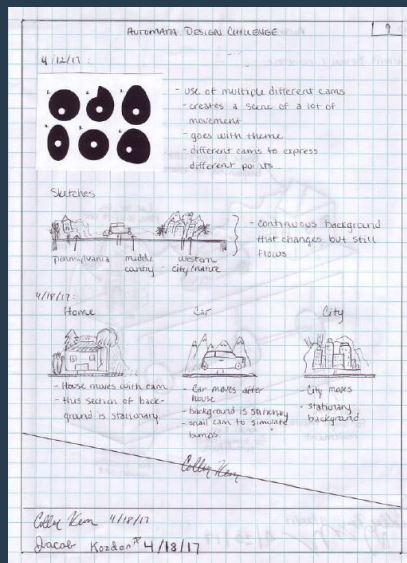 AUTOMATA DESIGN CHALLENGE
9
4/12/17:
1. 2. 3.
4. 5. 6.
- use of multiple different cams
- creates a scene of a lot of
movement
- goes with theme
- different cams to express
different points
Sketches
pennsylvania
middle
country
western
city/nature
- continuous background
that changes but still
flows
4/18/17:
Home
Car
City
- House moves with cam
- this section of back-
ground is stationary
- Car moves after
house
- background is stationary
- snail cam to simulate
bumps.
- City moves
- stationary
background
4/18/17
Jacob 4/18/17